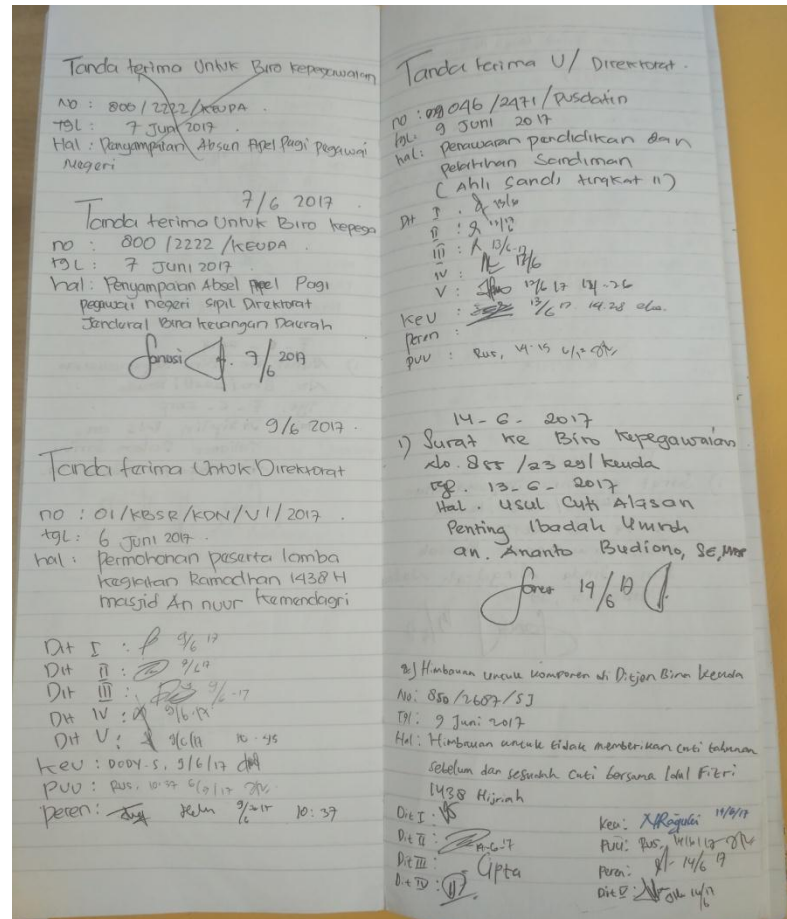 Tanda terima Untuk Biro kepegawaian
No : 800 / 2222 / KEUDA .
Tgl : 7 Juni 2017 .
Hal : Penyampaian Absen Apel Pagi Pegawai
Negeri
7/6 2017 .
Tanda terima Untuk Biro kepega
no : 800 / 2222 / KEUDA .
tgl : 7 Juni 2017 .
hal : Penyampaian Absel Apel Pagi
pegawai negeri sipil Direktorat
Jenderal Bina keuangan Daerah
Sanusi 7/6 2017
9/6 2017 .
Tanda terima Untuk Direktorat
no : 01/KBSR/KDN/VI/2017 .
tgl : 6 Juni 2017 .
hal : Permohonan peserta lomba
kegiatan Ramadhan 1438 H
masjid An nuur kemendagri
Dit I : 9/6 17
Dit II : 9/6 17
Dit III : 9/6 -17
Dit IV : 9/6 -17
Dit V : 9/6/17 10 - 45
keu : DODY . S , 9/6/17
PUU : Rus, 10:37
peren : 10 : 37
Tanda terima U/ Direktorat .
no : 046 /2471 / Pusdatin
tgl : 9 Juni 2017
hal : Penawaran pendidikan dan
Pelatihan Sandiman
( Ahli Sandi tingkat II )
Dit I : 13/6
II : 13/6
III : 13/6-17
IV : 13/6
V : 13/6 17
keu : 13/6 17 14.28
peren :
PUU : Rus, 14-15
14 - 6 - 2017
1) Surat ke Biro Kepegawaian
No. 855 /23 29/ keuda
tgl. 13 - 6 - 2017
Hal . Usul Cuti Alasan
Penting Ibadah Umroh
an. Ananto Budiono, SE,
19/6 17
2) Himbauan untuk komponen di Ditjen Bina keuda
No : 850 /2687 / SJ
Tgl : 9 Juni 2017
Hal : Himbauan untuk tidak memberikan cuti tahunan
sebelum dan sesudah cuti bersama Idul Fitri
1438 Hijriah
Dit I : Keu : 14/6/17
Dit II : 14-6-17 PUU : Rus, 14/6/17
Dit III : Cipta Peren : 14/6 17
Dit IV : Dit V : 14/6 17